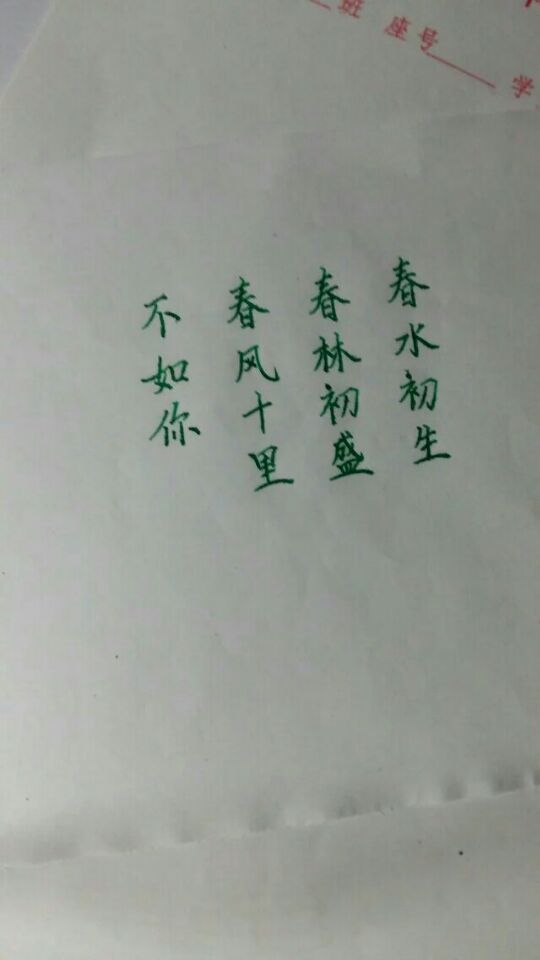 班 座号 学
春水初生
春林初盛
春风十里
不如你